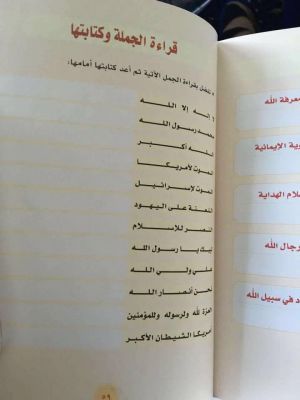 قراءة الجملة وكتابتها
تفضل بقراءة الجمل الآتية ثم أعد كتابتها أمامها:
لا إله إلا الله
محمد رسول الله
الله أكبر
الموت لأمريكا
الموت لإسرائيل
اللعنة على اليهود
النصر للإسلام
لبيك يا رسول الله
علي ولي الله
نحن أنصار الله
العزة لله ولرسوله وللمؤمنين
أمريكا الشيطان الأكبر
٥٩
معرفة الله
الإيمانية
الهداية
رجال الله
في سبيل الله